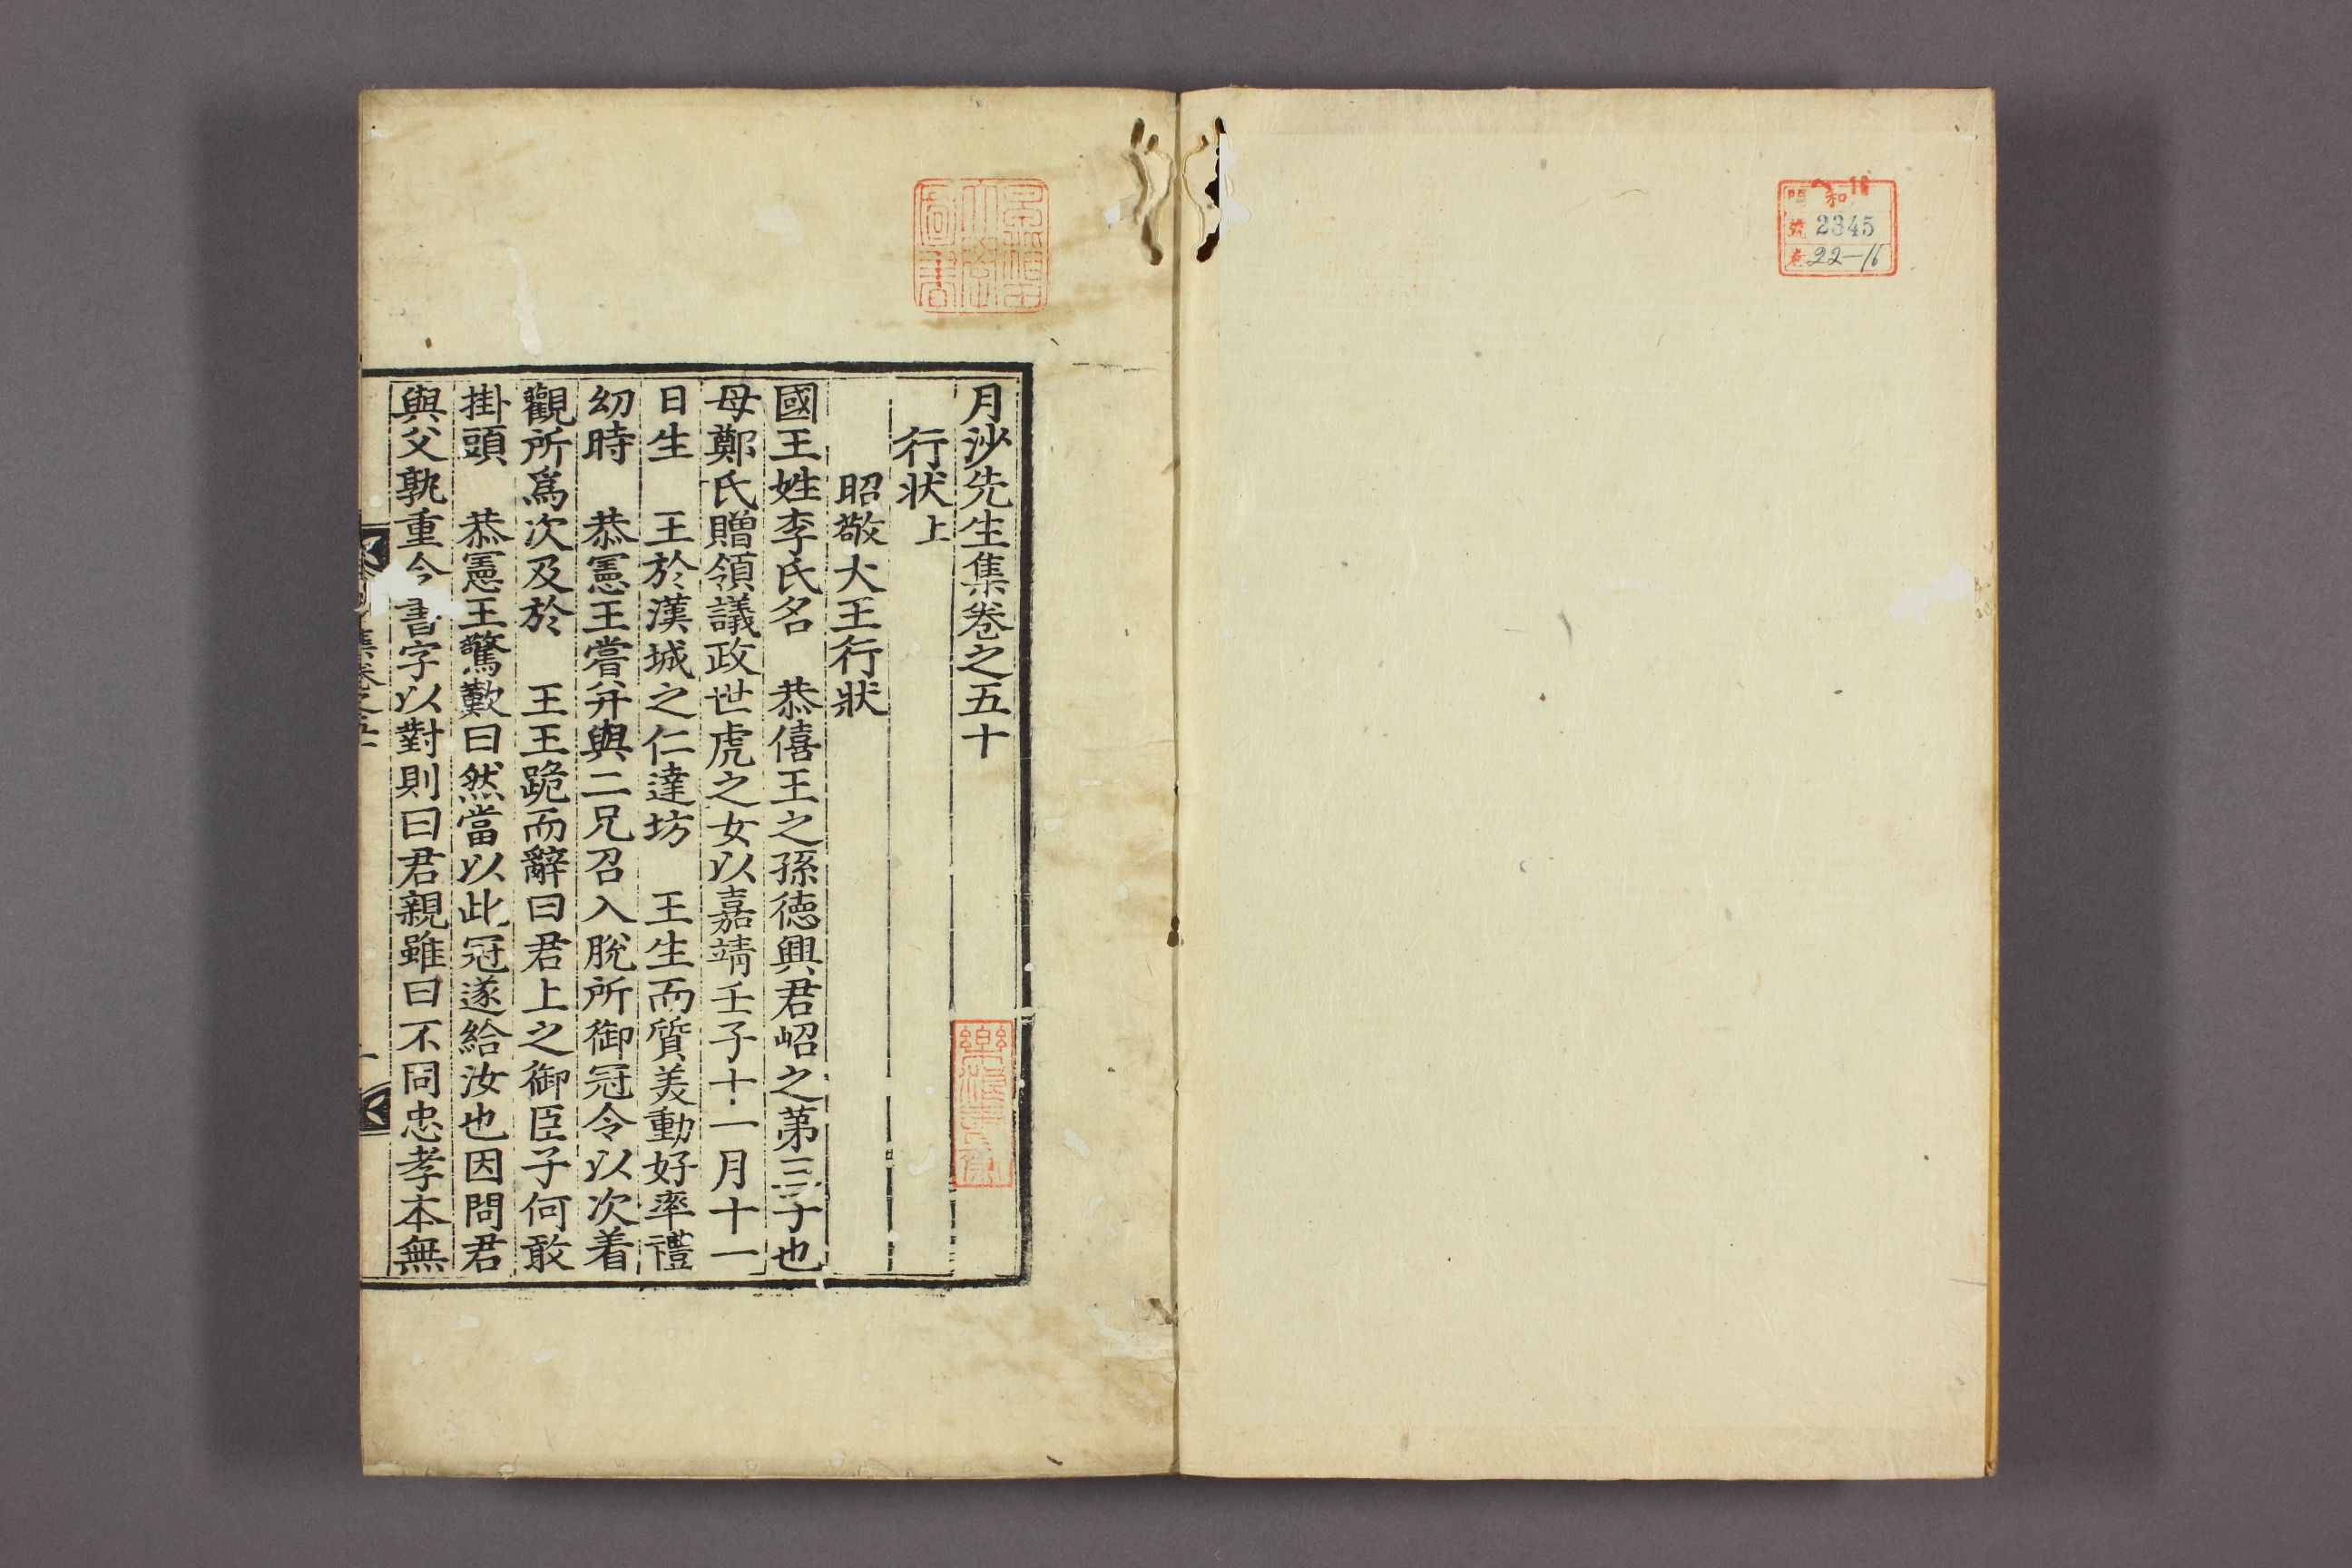 和
號 2345
卷 22-16
月沙先生集卷之五十
行狀上
昭敬大王行狀
國王姓李氏名 恭僖王之孫德興君岹之第三子也
母鄭氏贈領議政世虎之女以嘉靖壬子十一月十一
日生 王於漢城之仁達坊 王生而質美動好率禮
幼時 恭憲王嘗幷與二兄召入脫所御冠令以次着
觀所爲次及於 王王跪而辭曰君上之御臣子何敢
掛頭 恭憲王驚歎曰然當以此冠遂給汝也因問君
與父孰重令書字以對則曰君親雖曰不同忠孝本無
集卷之五十